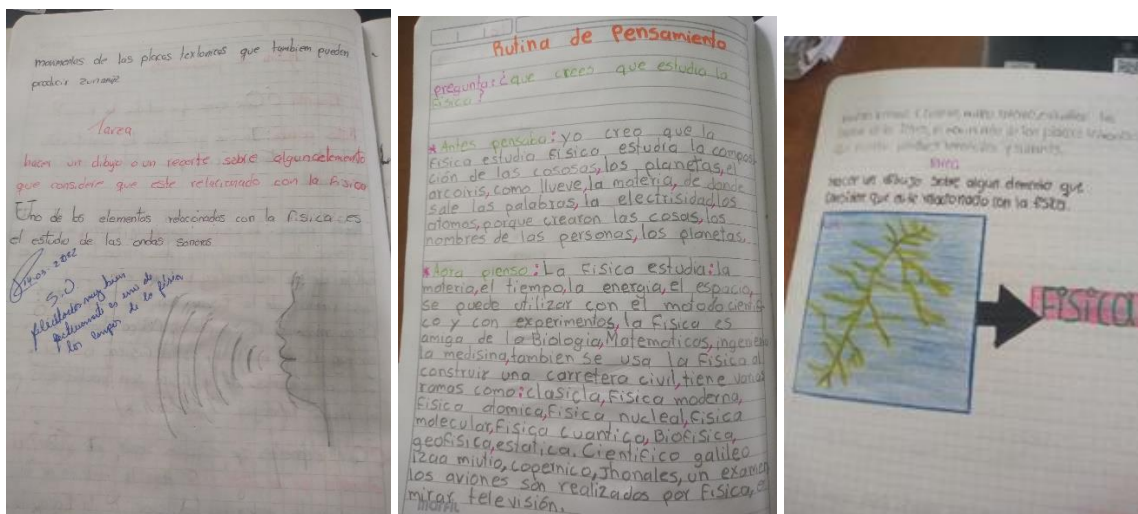 movimientos de las placas textonicas que tambien pueden
producir zunamis
Tarea
hacer un dibujo o un reporte sobre algun elemento
que considere que este relacionado con la fisica
Uno de los elementos relacionados con la fisica es
el estudio de las ondas sonoras
5.0
muy bien
es uno de
los campos de la física
Rutina de Pensamiento
pregunta: ¿que crees que estudia la
fisica?
*Antes pensaba: yo creo que la
fisica estudia fisica estudia la composi
ción de las cosasas, los planetas, el
arcoiris, como llueve, la materia, de donde
sale las palabras, la electrisidad, los
atomos, porque crearon las cosas, los
nombres de las personas, los planetas.
*Aora pienso: La Fisica estudia: la
materia, el tiempo, la energia, el espacio,
se puede utilizar con el motodo cientifi
co y con experimentos, la Fisica es
amiga de la Biologia, Matematicas, ingenie
la medisina, tambien se usa la Fisica al
construir una carretera civil, tiene varias
ramas como: clasicla, Fisica moderna,
Fisica atomica, Fisica nucleal, Fisica
molecular, Fisica cuantica, Biofisica,
geofisica, estatica. Cientifico galileo
izaa miutio, copernico, Jhonales, un examen
los aviones son realizados por Fisica, el
mirar televisión.
de las placas
Tarea
Hacer un dibujo sobre algun elemento que
considere que este relacionado con la fisica.
Fisica